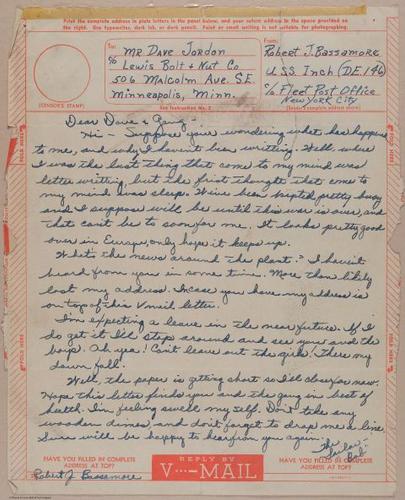 Print the complete address in plain letters in the panel below, and your return address in the space provided on the right. Use typewriter, dark ink, or dark pencil. Faint or small writing is not suitable for photographing.
To:
Mr Dave Jordan
℅ Lewis Bolt & Nut Co
506 Malcolm Ave. S.E.
Minneapolis, Minn.
From:
Robert J. Bassamore
U.S.S. Inch (D.E. 146)
℅ Fleet Post Office
New York City
(CENSOR'S STAMP)
See Instruction No. 2
(Sender's complete address above)
Dear Dave & Gang:-
Hi - Suppose your wondering what has happen
to me, and why I haven't been writing. Well where
I was the last thing that come to my mind was
letter writing but the first thought that come to
my mind was sleep. We've been kept pretty busy
and I suppose will be until this war is over, and
that cant be to soon for me. It looks pretty good
over in Europe, only hope it keeps up.
Whats the news around the plant? I havent
heard from you in some time. More than likely
lost my address. Incase you have, my address is
on top of this V mail letter.
I'm expecting a leave in the near future. If I
do get it I'll stop around and see you and the
boys. Oh yea! Can't leave out the girls. There my
down fall.
Well, the paper is getting short so I'll close for now.
Hope this letter finds you and the gang in best of
health. I'm feeling swell my self. Don't take any
wooden dimes, and don't forget to drap me a line.
Sure will be happy to hear from you again.
HAVE YOU FILLED IN COMPLETE ADDRESS AT TOP?
REPLY BY
V···—MAIL
HAVE YOU FILLED IN COMPLETE ADDRESS AT TOP?
Robert J Bassamore